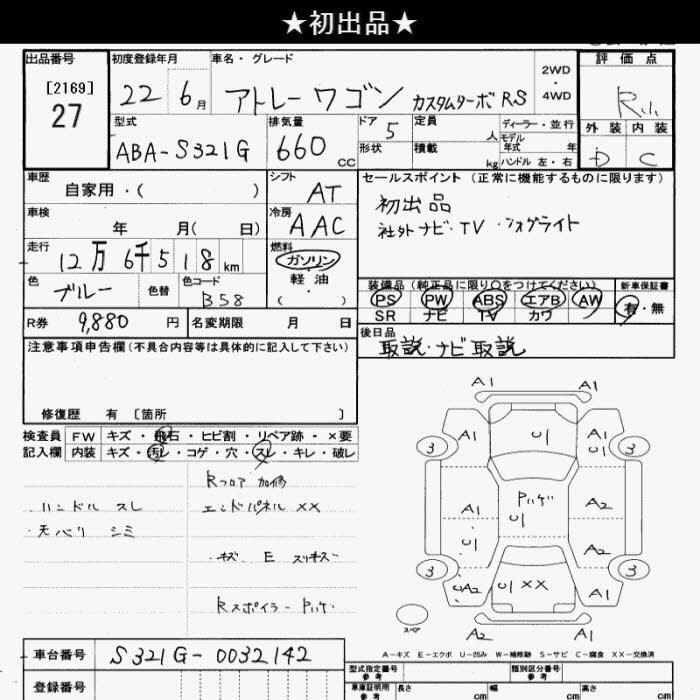 ★初出品★
出品番号
[2169]
27
初度登録年月
22 6月
車名・グレード
アトレーワゴン カスタムターボRS
2WD
・
4WD
評価点
型式
ABA-S321G
排気量
660 cc
ドア 5
形状
定員 人
積載 kg
ディーラー・並行
モデル
年式 年
ハンドル 左・右
外装 内装
D C
車歴
自家用・( )
シフト
AT
セールスポイント (正常に機能するものに限ります)
初出品
社外ナビ・TV・フォグライト
車検
年 月( 日)
冷房
AAC
走行
12万6千518km
燃料
ガソリン
・
軽・油
( )
色
ブルー
色替
色コード
B58
装備品 (純正品に限り○をつけてください)
PS PW ABS エアB AW
SR ナビ TV カワ
新車保証書
有・無
R券 9,880 円
名変期限 月 日
後日品
取説・ナビ取説
注意事項申告欄 (不具合内容等は具体的に記入して下さい)
修復歴 有 〔箇所 〕
検査員
記入欄
FW キズ・飛石・ヒビ割・リペア跡・×要
内装 キズ・汚レ・コゲ・穴・スレ・キレ・破レ
Rフロア 加修
・ハンドル スレ
エンドパネル ××
・天バリ シミ
・キズ E スリキズ
Rスポイラー Pハゲ
A1 A1
A1 U1 A1 U1
3 3
Pハゲ U1 A2
A1
U1 A2
3 3
A2 U1 ×× A1
A2 A1
スペア
A-キズ E-エクボ U-凹み W-補修跡 S-サビ C-腐食 ××-交換済
車台番号 S321G-0032142
登録番号
型式指定番号
参考
類別区分番号
参考
車庫証明用
参考
長さ cm
幅 cm
高さ cm